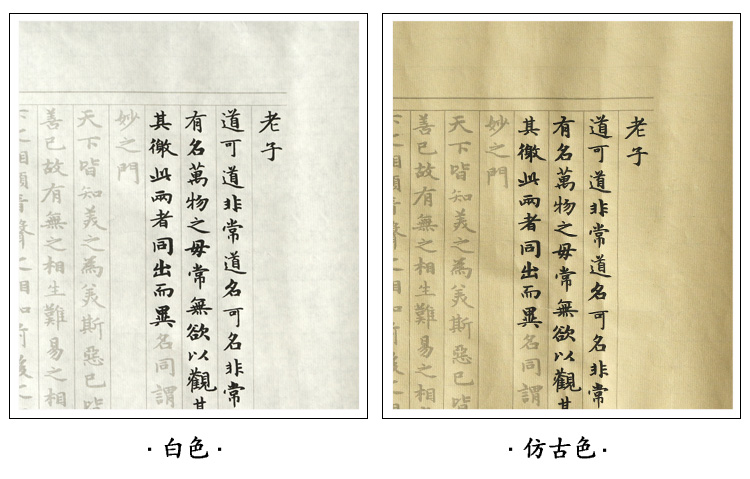 老子
道可道非常道名可名非常
有名萬物之毋常無欲以觀其
其徼此兩者同出而異名同謂
妙之門
天下皆知美之為美斯惡已皆
善已故有無之相生難易之相
·白色·
老子
道可道非常道名可名非常
有名萬物之毋常無欲以觀其
其徼此兩者同出而異名同謂
妙之門
天下皆知美之為美斯惡已皆
善已故有無之相生難易之相
·仿古色·